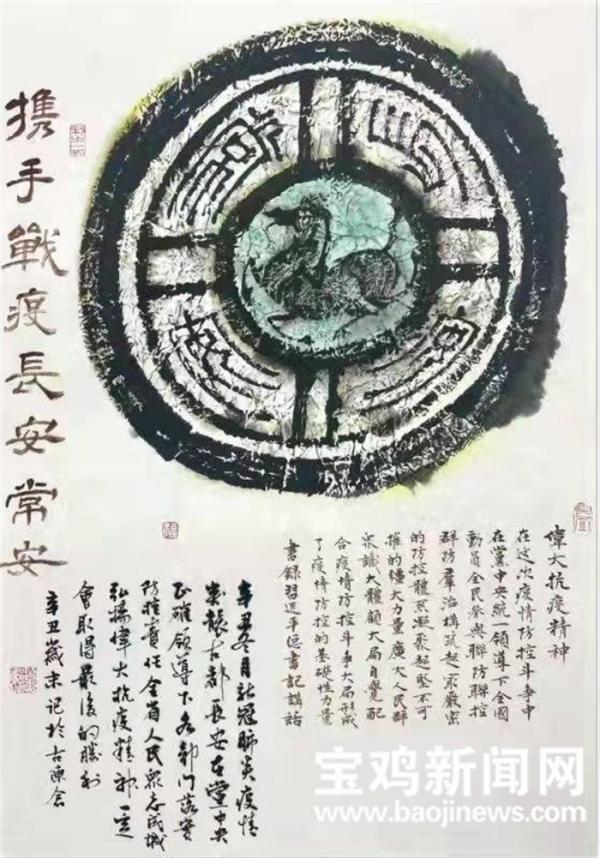 攜手戰疫長安常安
偉大抗疫精神
在这次疫情防控斗争中
在黨中央統一領導下全國
動員全民參與聯防聯控
群防羣治構筑起最嚴密
的防控體系凝聚起堅不可
摧的彊大力量廣大人民群
衆識大體顧大局自覺配
合疫情防控斗争大局形成
了疫情防控的基礎性力量
書錄習近平總書記講話
辛丑冬月新冠肺炎疫情
襲古都長安在黨中央
正確領導下各部門落實
防控責任全省人民衆志成城
弘揚偉大抗疫精神一定
會取得最後的勝利
辛丑歲末記於古陳倉
宝鸡新闻网
www.baojinews.com